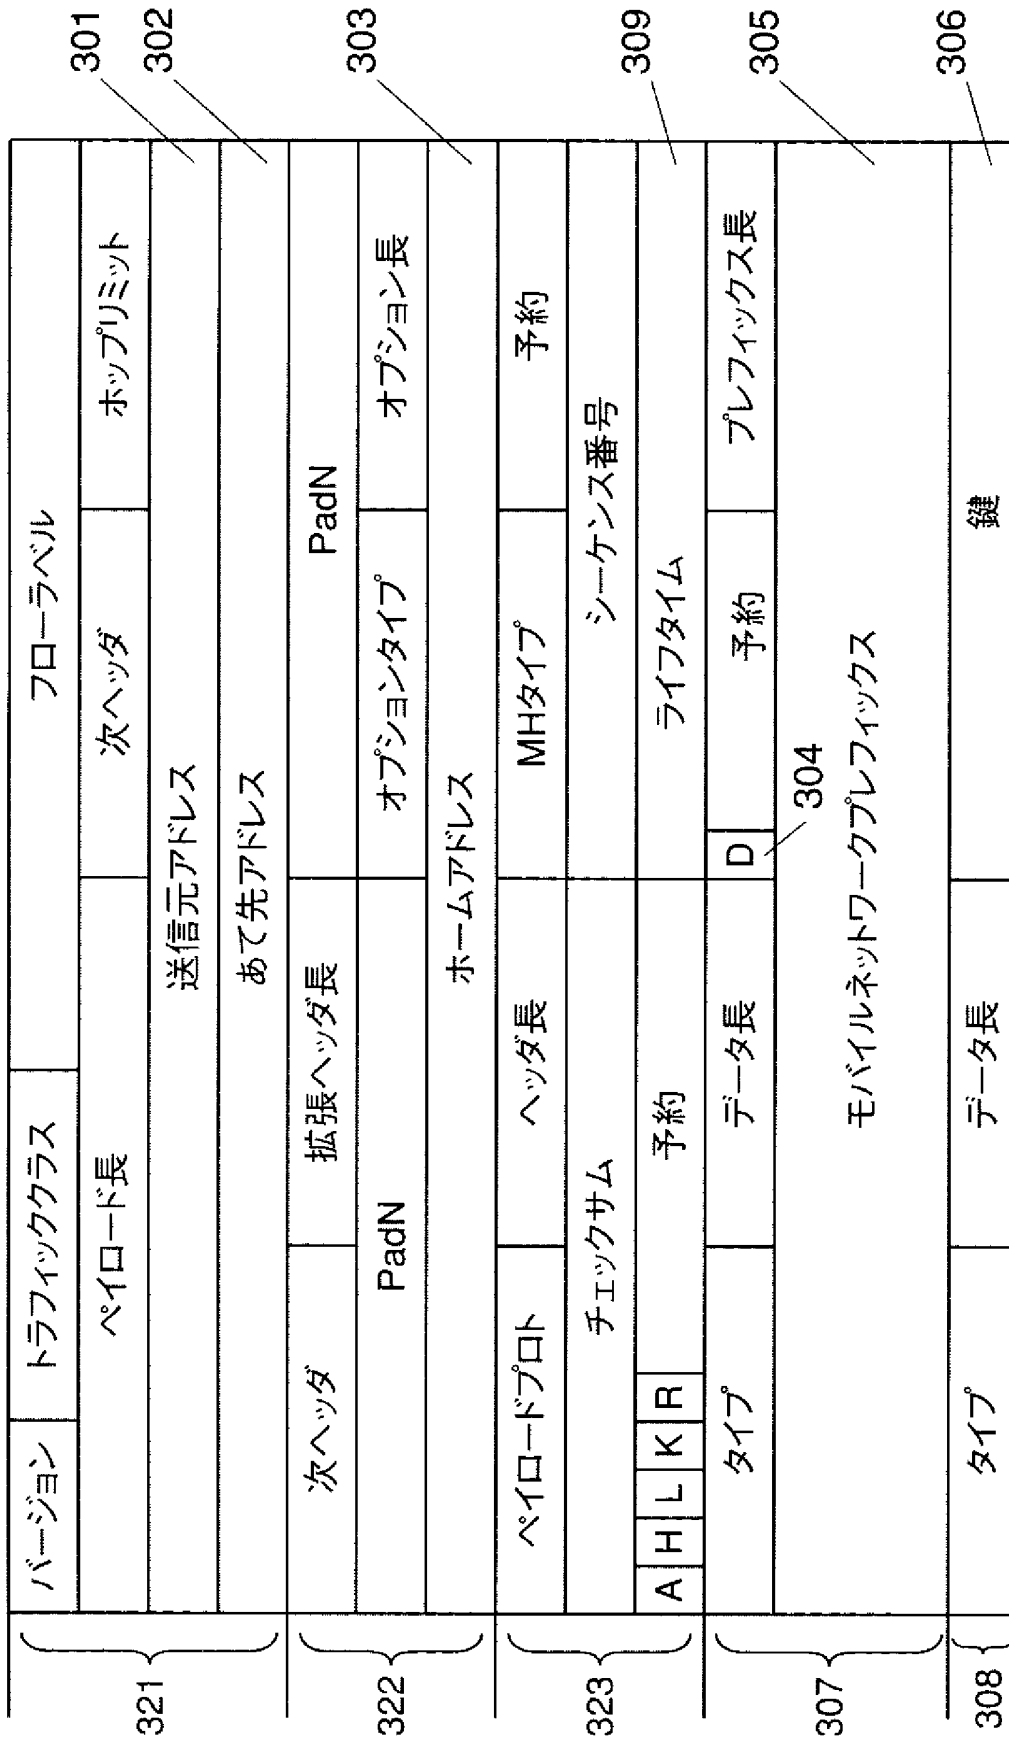 321
バージョン
トラフィッククラス
フローラベル
ペイロード長
次ヘッダ
ホップリミット
送信元アドレス
301
あて先アドレス
302
322
次ヘッダ
拡張ヘッダ長
PadN
PadN
オプションタイプ
オプション長
ホームアドレス
303
323
ペイロードプロト
ヘッダ長
MHタイプ
予約
チェックサム
シーケンス番号
A
H
L
K
R
予約
ライフタイム
309
307
タイプ
データ長
D
304
予約
プレフィックス長
モバイルネットワークプレフィックス
305
308
タイプ
データ長
鍵
306